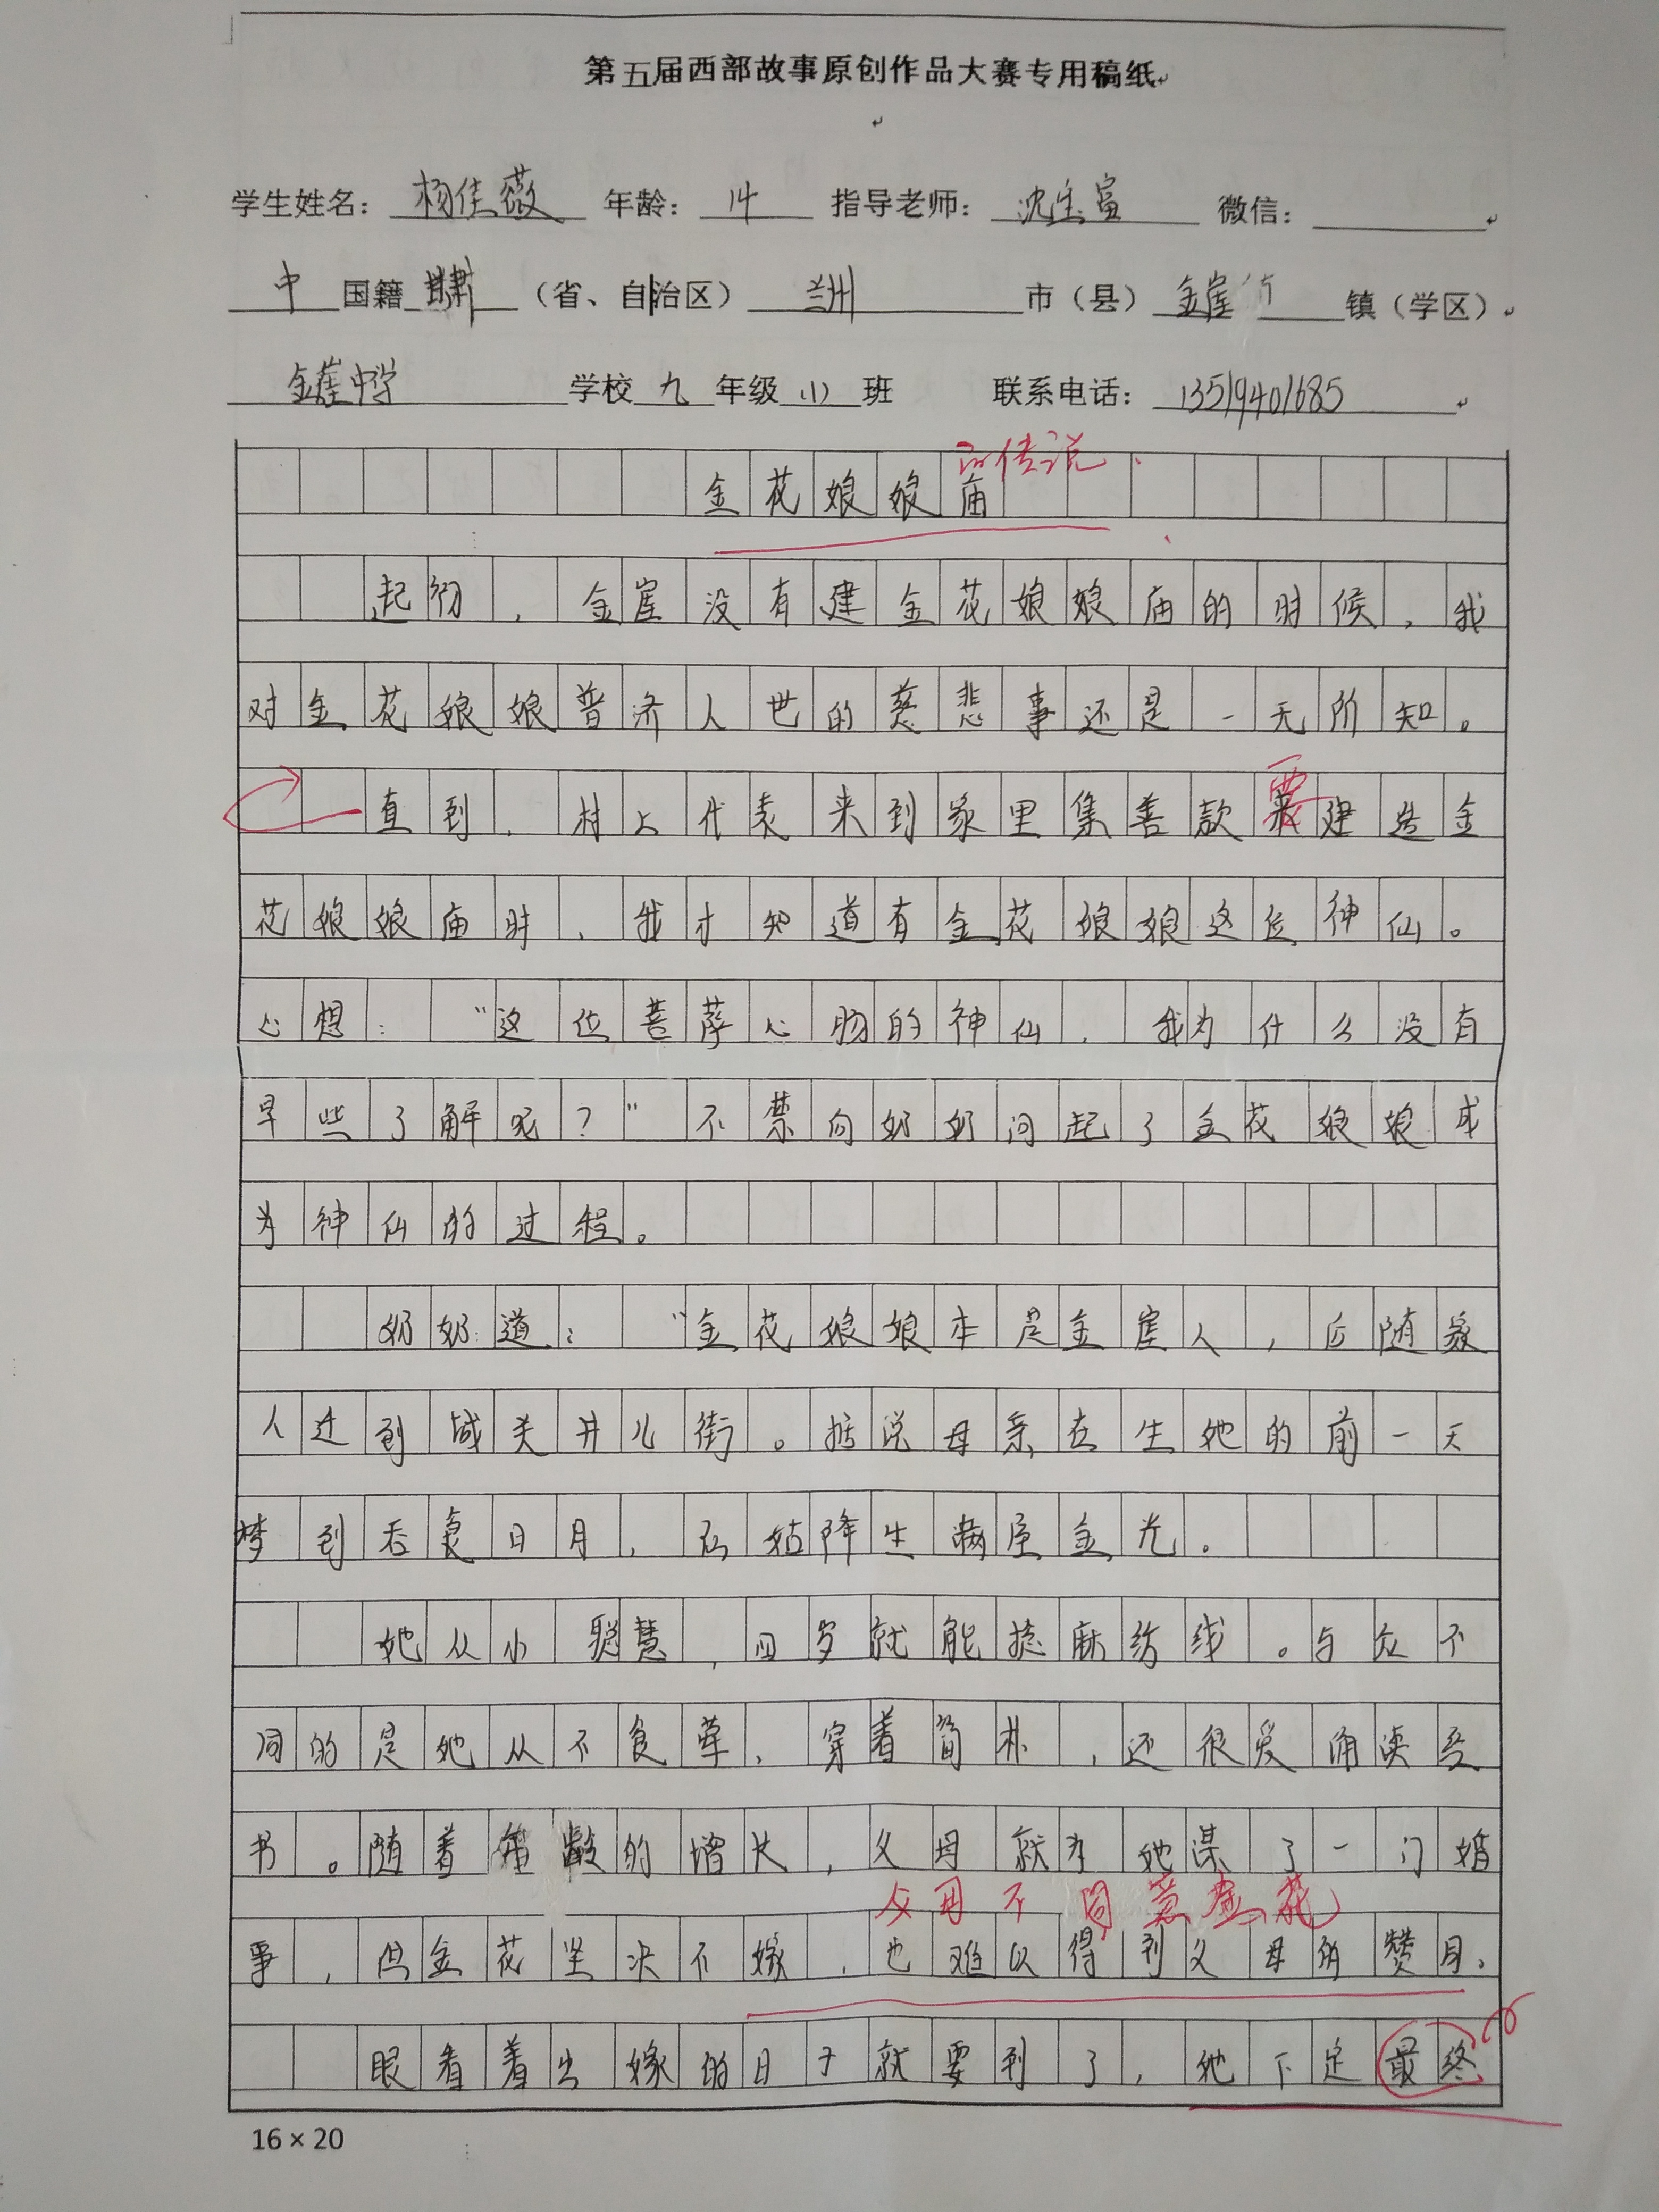 第五届西部故事原创作品大赛专用稿纸
学生姓名：杨佳薇 年龄：14 指导老师：沈宝宣 微信：
中国籍 甘肃（省、自治区）兰州 市（县）金崖 镇（学区）
金崖中学 学校 九 年级 (1) 班 联系电话：13519401685
的传说
金花娘娘庙
起初，金崖没有建金花娘娘庙的时候，我
对金花娘娘普济人世的慈悲事还是一无所知。
要
一直到，村上代表来到家里集善款来建造金
花娘娘庙时，我才知道有金花娘娘这位神仙。
心想：“这位菩萨心肠的神仙，我为什么没有
早些了解呢？”不禁向奶奶问起了金花娘娘成
为神仙的过程。
奶奶道：“金花娘娘本是金崖人，后随家
人迁到城关井儿街。据说母亲在生她的前一天
梦到吞食日月，后姑降生满屋金光。
她从小聪慧，四岁就能捻麻纺线。与众不
同的是她从不食荤，穿着简朴，还很爱诵读经
书。随着年龄的增长，父母就为她谋了一门婚
父母不同意金花
事，但金花坚决不嫁，也难以得到父母的赞同。
眼看着出嫁的日子就要到了，她下定最终
16×20